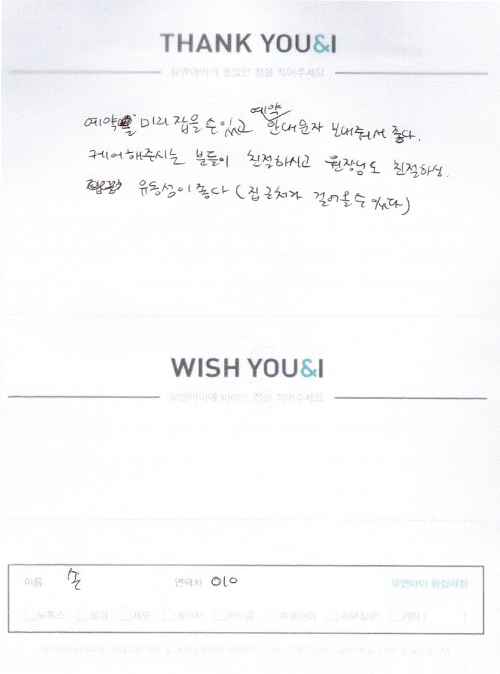 THANK YOU&I
유앤아이의 좋았던 점을 적어주세요
예약
예약을 미리 잡을 수 있고 안내문자 보내줘서 좋다.
케어해주시는 분들이 친절하시고 원장님도 친절하심.
유동성이 좋다 (집 근처라 걸어올 수 있다)
WISH YOU&I
유앤아이에 바라는 점을 적어주세요
이름 손 연락처 010 유앤아이 왕십리점
보톡스 필러 제모 레이저 여드름 피부관리 피부질환 기타 ( )